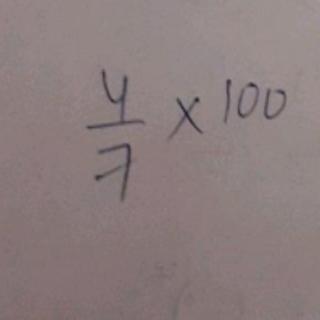 4/7 × 100